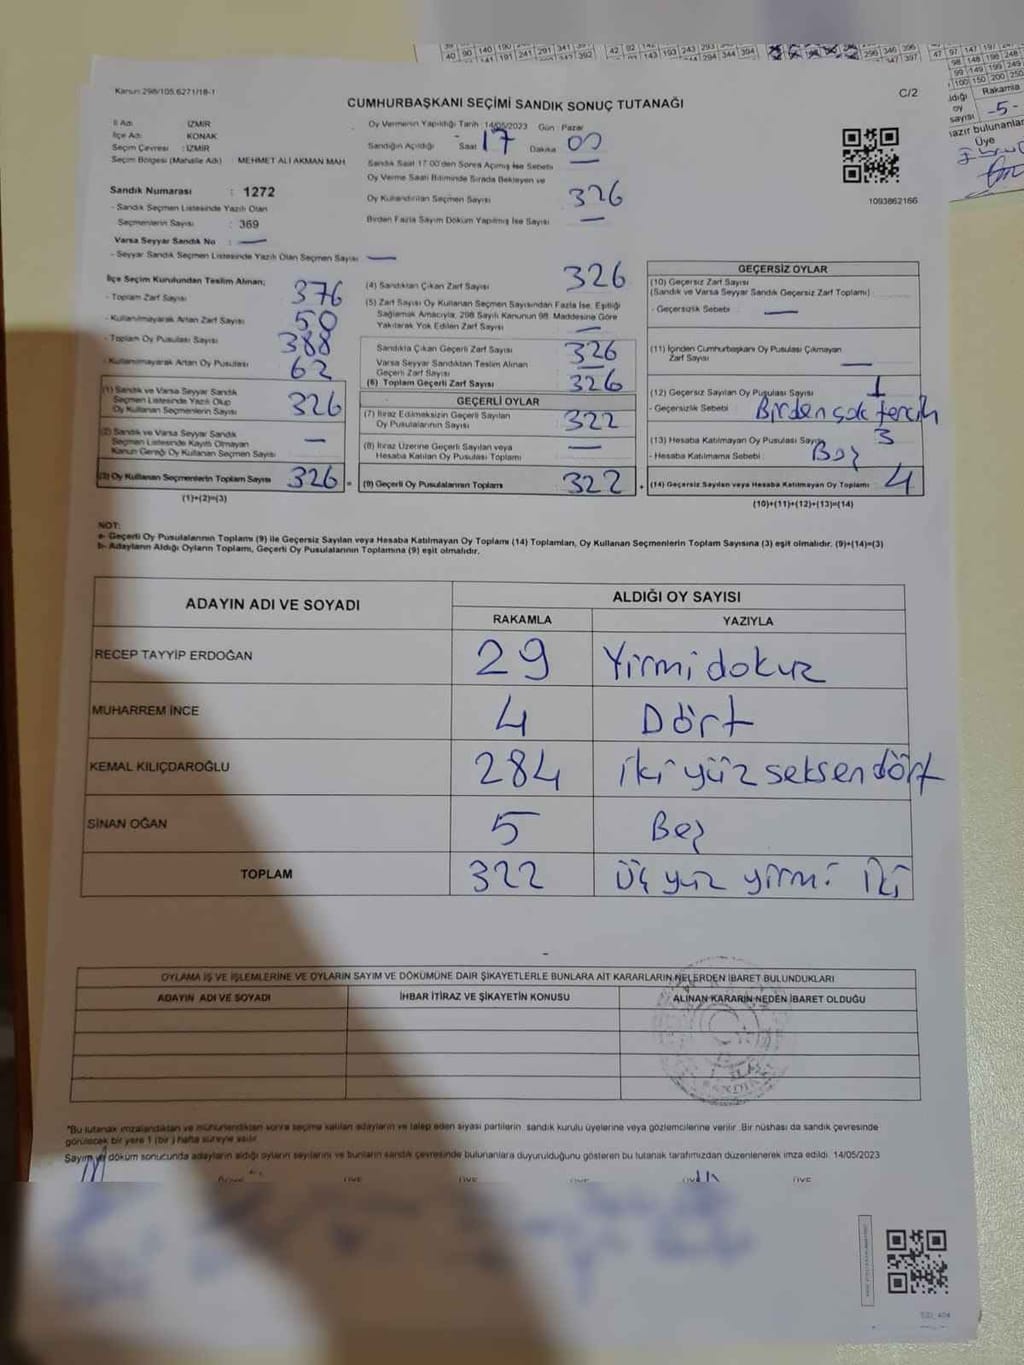 Kanun 298/105,6271/18-1
CUMHURBAŞKANI SEÇİMİ SANDIK SONUÇ TUTANAĞI
C/2
İl Adı : İZMİR
İlçe Adı : KONAK
Seçim Çevresi : İZMİR
Seçim Bölgesi (Mahalle Adı) : MEHMET ALİ AKMAN MAH
Sandık Numarası : 1272
- Sandık Seçmen Listesinde Yazılı Olan
Seçmenlerin Sayısı : 369
Varsa Seyyar Sandık No : —
- Seyyar Sandık Seçmen Listesinde Yazılı Olan Seçmen Sayısı —
Oy Vermenin Yapıldığı Tarih : 14/05/2023 Gün : Pazar
Sandığın Açıldığı Saat 17 Dakika 00
Sandık Saat 17:00'den Sonra Açılmış İse Sebebi —
Oy Verme Saati Bitiminde Sırada Bekleyen ve
Oy Kullandırılan Seçmen Sayısı 326
Birden Fazla Sayım Döküm Yapılmış İse Sayısı —
1093862166
İlçe Seçim Kurulundan Teslim Alınan;
- Toplam Zarf Sayısı 376
- Kullanılmayarak Artan Zarf Sayısı 50
- Toplam Oy Pusulası Sayısı 388
- Kullanılmayarak Artan Oy Pusulası 62
(1) Sandık ve Varsa Seyyar Sandık
Seçmen Listesinde Yazılı Olup
Oy Kullanan Seçmenlerin Sayısı 326
(2) Sandık ve Varsa Seyyar Sandık
Seçmen Listesinde Kayıtlı Olmayan
Kanun Gereği Oy Kullanan Seçmen Sayısı —
(3) Oy Kullanan Seçmenlerin Toplam Sayısı 326 =
(1)+(2)=(3)
(4) Sandıktan Çıkan Zarf Sayısı 326
(5) Zarf Sayısı Oy Kullanan Seçmen Sayısından Fazla İse, Eşitliği
Sağlamak Amacıyla, 298 Sayılı Kanunun 98. Maddesine Göre
Yakılarak Yok Edilen Zarf Sayısı —
Sandıkta Çıkan Geçerli Zarf Sayısı 326
Varsa Seyyar Sandıktan Teslim Alınan
Geçerli Zarf Sayısı —
(6) Toplam Geçerli Zarf Sayısı 326
GEÇERLİ OYLAR
(7) İtiraz Edilmeksizin Geçerli Sayılan
Oy Pusulalarının Sayısı 322
(8) İtiraz Üzerine Geçerli Sayılan veya
Hesaba Katılan Oy Pusulası Toplamı —
(9) Geçerli Oy Pusulalarının Toplamı 322 +
GEÇERSİZ OYLAR
(10) Geçersiz Zarf Sayısı
(Sandık ve Varsa Seyyar Sandık Geçersiz Zarf Toplamı)
- Geçersizlik Sebebi : —
(11) İçinden Cumhurbaşkanı Oy Pusulası Çıkmayan
Zarf Sayısı —
(12) Geçersiz Sayılan Oy Pusulası Sayısı 1
- Geçersizlik Sebebi : Birden çok tercih
(13) Hesaba Katılmayan Oy Pusulası Sayısı 3
- Hesaba Katılmama Sebebi : Boş
(14) Geçersiz Sayılan veya Hesaba Katılmayan Oy Toplamı 4
(10)+(11)+(12)+(13)=(14)
NOT:
a- Geçerli Oy Pusulalarının Toplamı (9) ile Geçersiz Sayılan veya Hesaba Katılmayan Oy Toplamı (14) Toplamları, Oy Kullanan Seçmenlerin Toplam Sayısına (3) eşit olmalıdır. (9)+(14)=(3)
b- Adayların Aldığı Oyların Toplamı, Geçerli Oy Pusulalarının Toplamına (9) eşit olmalıdır.
ADAYIN ADI VE SOYADI
ALDIĞI OY SAYISI
RAKAMLA YAZIYLA
RECEP TAYYİP ERDOĞAN 29 Yirmi dokuz
MUHARREM İNCE 4 Dört
KEMAL KILIÇDAROĞLU 284 iki yüz seksen dört
SİNAN OĞAN 5 Beş
TOPLAM 322 Üç yüz yirmi iki
OYLAMA İŞ VE İŞLEMLERİNE VE OYLARIN SAYIM VE DÖKÜMÜNE DAİR ŞİKAYETLERLE BUNLARA AİT KARARLARIN NELERDEN İBARET BULUNDUKLARI
ADAYIN ADI VE SOYADI İHBAR İTİRAZ VE ŞİKAYETİN KONUSU ALINAN KARARIN NEDEN İBARET OLDUĞU
*Bu tutanak imzalandıktan ve mühürlendikten sonra seçime katılan adayların ve talep eden siyasi partilerin, sandık kurulu üyelerine veya gözlemcilerine verilir. Bir nüshası da sandık çevresinde
görülecek bir yere 1 (bir) hafta süreyle asılır.
Sayım ve döküm sonucunda adayların aldığı oyların sayılarını ve bunların sandık çevresinde bulunanlara duyurulduğunu gösteren bu tutanak tarafımızdan düzenlenerek imza edildi. 14/05/2023
Rakamla
oy
sayısı -5-
hazır bulunanlar
Üye